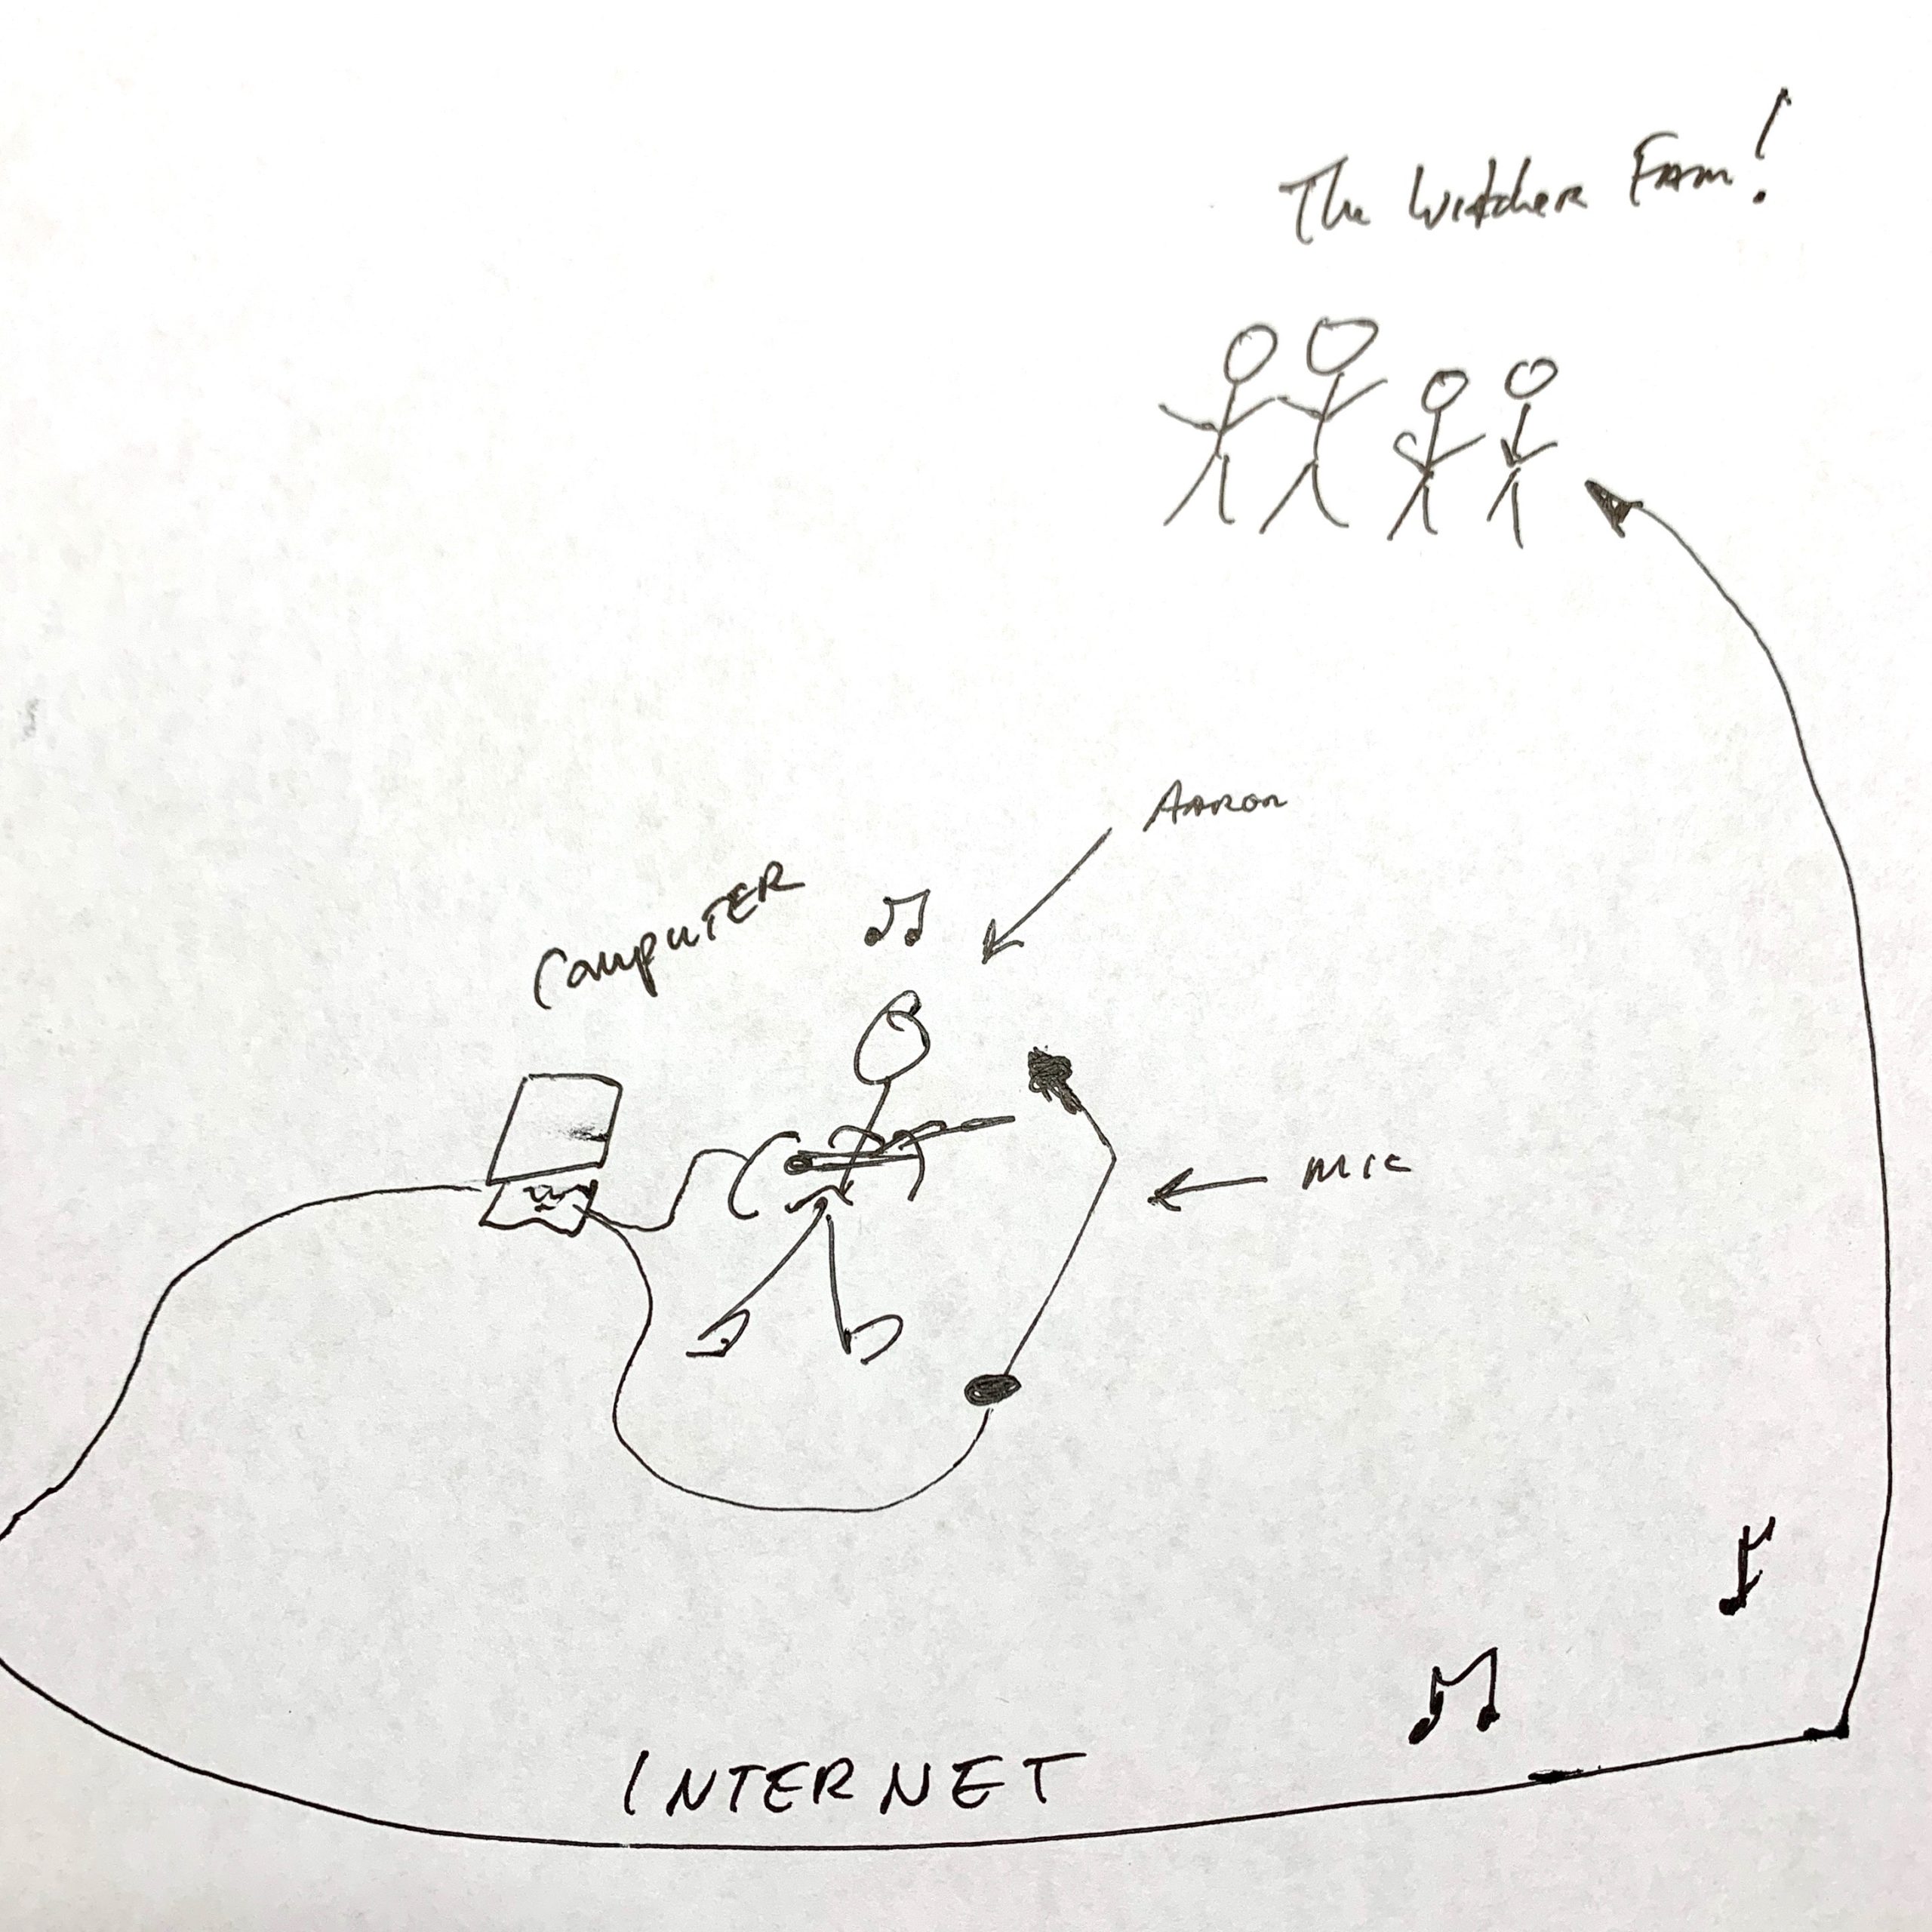 The Witcher Fam!
Aaron
Computer
Mic
INTERNET